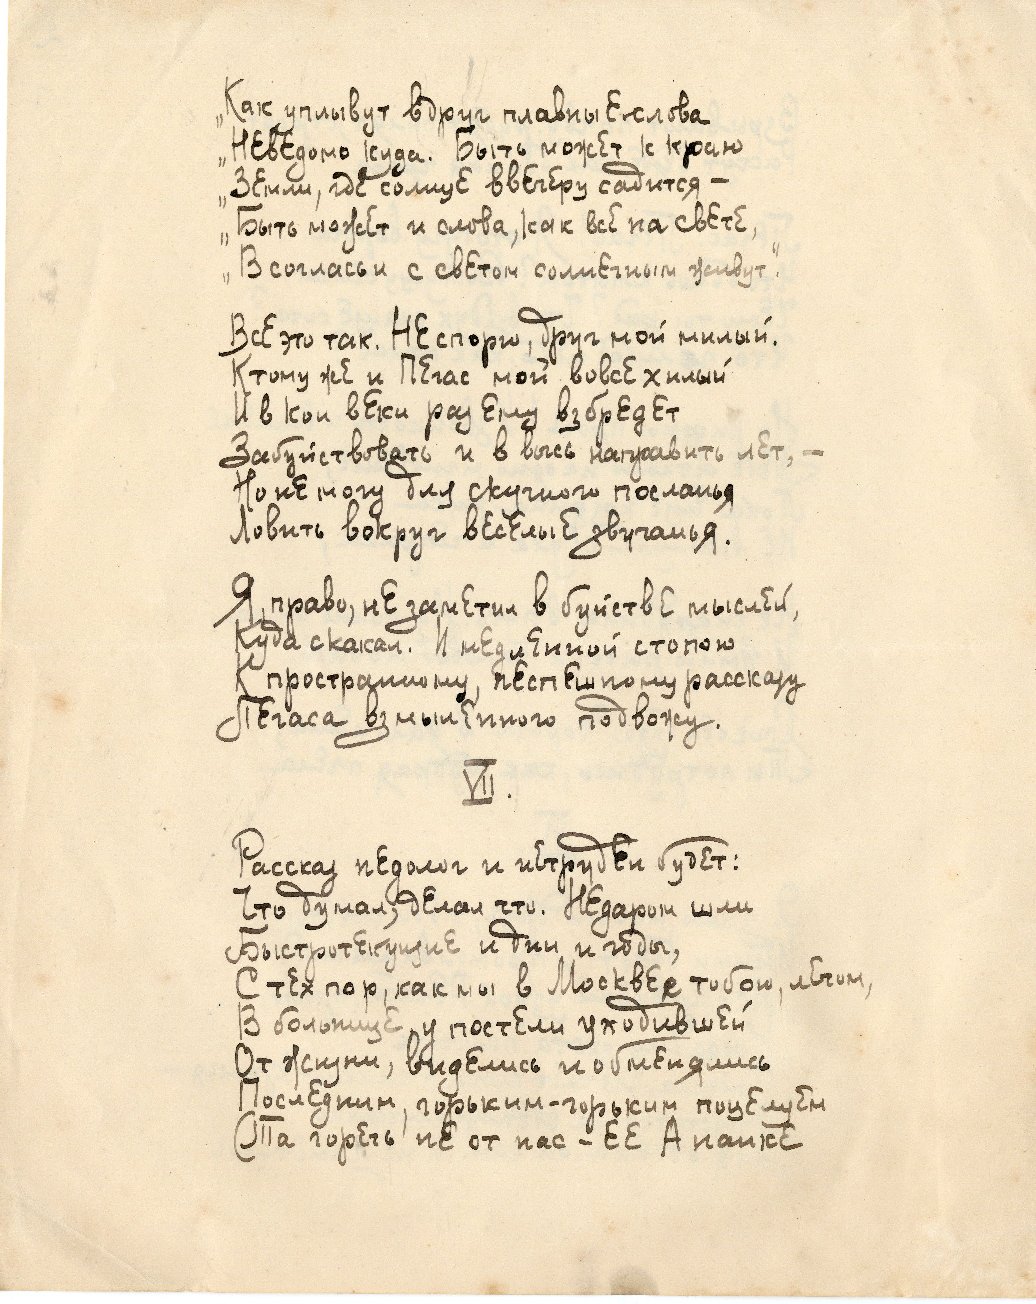 „Как уплывут вдруг плавные слова
„Неведомо куда. Быть может к краю
„Земли, где солнце ввечеру садится –
„Быть может и слова, как все на свете,
„В согласьи с светом солнечным живут“.
Все это так. Не спорю, друг мой милый.
К тому же и Пегас мой вовсе хилый
И в кои веки раз ему взбредет
Забуйствовать и в высь направить лет, –
Но не могу для скучного посланья
Ловить вокруг веселые звучанья.
Я, право, не заметил в буйстве мыслей,
Куда скакал. И медленной стопою
К пространному, неспешному рассказу
Пегаса взмыленного подвожу.
VII.
Рассказ недолог и нетруден будет:
Что думал, делал что. Недаром шли
Быстротекущие и дни и годы,
С тех пор, как мы в Москве с тобою, летом,
В больнице, у постели уходившей
От жизни, виделись и обменялись
Последним, горьким-горьким поцелуем
(Та горечь не от нас – ее Ананке